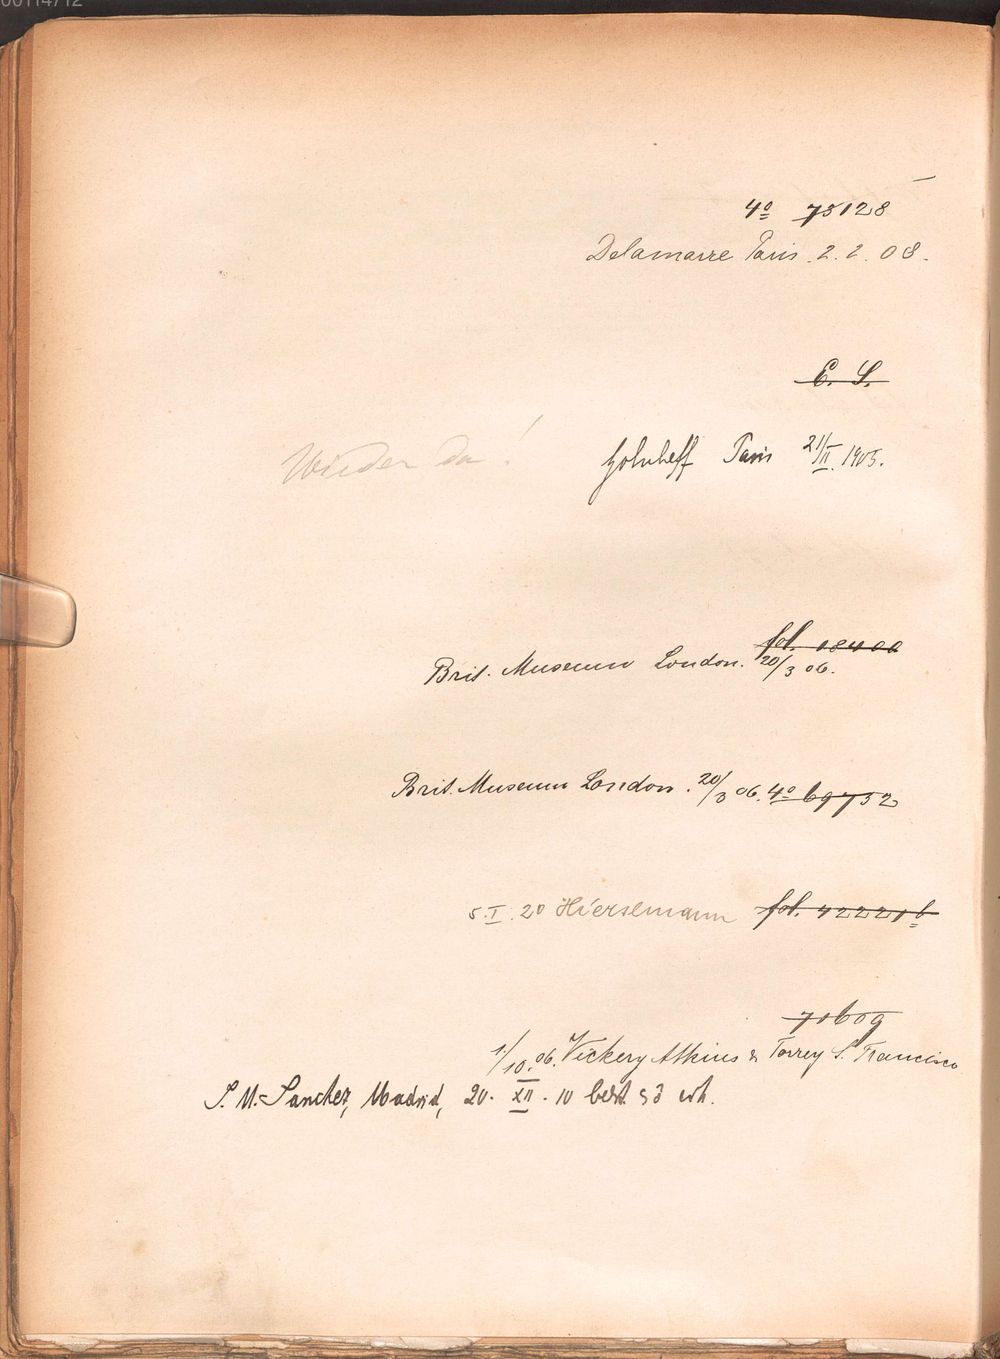 00114712
4º 75128
Delamarre Paris 2.2.08.
E. S.
Wieder da!
Paris 21/II. 1905.
fol. 08400
Brit. Museum London. 20/3 06.
Brit. Museum London. 20/3 06. 4º 69752
5.I.20 Hiersemann fol. 42221 b
70609
1/10.06. Vickery Atkins & Torrey S. Francisco
S. M. Sanchez, Madrid, 20. XII. 10